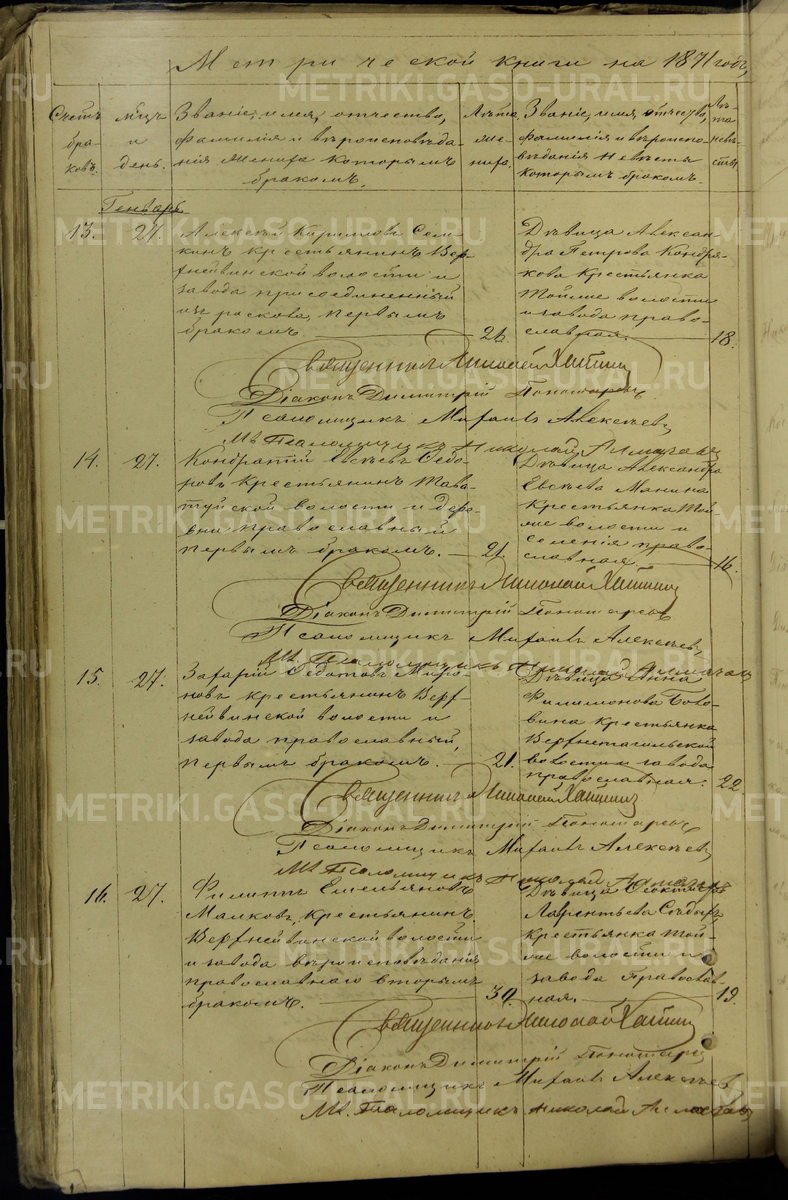 Метрической книги на 1871 годъ,
Счетъ браковъ.
м-цъ и день.
Званіе, имя, отчество,
фамилія и вѣроисповѣда
нія жениха которымъ
бракомъ.
Лѣта жениха.
Званіе, имя, отчество,
фамилія и вѣроиспо-
вѣданія невѣсты
которымъ бракомъ.
Лѣта невѣсты
Генварь
13. 27.
Алексѣй Кирилловъ
крестьянинъ Верх
нейвинской волости и
завода присоединенный
изъ раскола, первымъ
бракомъ. 24.
Дѣвица Алексан-
дра Петрова Кондря-
кова крестьянка
тойже волости
и завода право-
славная. 18.
Священникъ Николай
Діаконъ Димитрій Пономаревъ
Псаломщикъ Михаилъ Алексѣевъ
Псаломщикъ Николай
14. 27.
Кондратій Евсѣевъ Федо-
ровъ крестьянинъ Тава-
туйской волости и дере-
вни православный
первымъ бракомъ. 21.
Дѣвица Александра
Евсѣева Манина
крестьянка той
же волости и
селенія право-
славная. 16.
Священникъ Николай
Діаконъ Димитрій Пономаревъ
Псаломщикъ Михаилъ Алексѣевъ
Псаломщикъ Николай
15. 27.
Захарій Федотовъ Миро-
новъ крестьянинъ Верх-
нейвинской волости и
завода православный,
первымъ бракомъ. 21.
Дѣвица Анна
Филимонова
крестьянка
Верхнетагильской
волости и завода
православная. 22
Священникъ Николай
Діаконъ Димитрій Пономаревъ
Псаломщикъ Михаилъ Алексѣевъ
Псаломщикъ Николай
16. 27.
Филиппъ Емельяновъ
Малковъ, крестьянинъ
Верхнейвинской волости
и завода вѣроисповѣданія
православнаго вторымъ
бракомъ. 30.
Дѣвица
Лаврентьева
крестьянка той
же волости и
завода Православ
ная. 19.
Священникъ Николай
Діаконъ Димитрій Пономаревъ
Псаломщикъ Михаилъ Алексѣевъ
Псаломщикъ Николай
METRIKI.GASO-URAL.RU